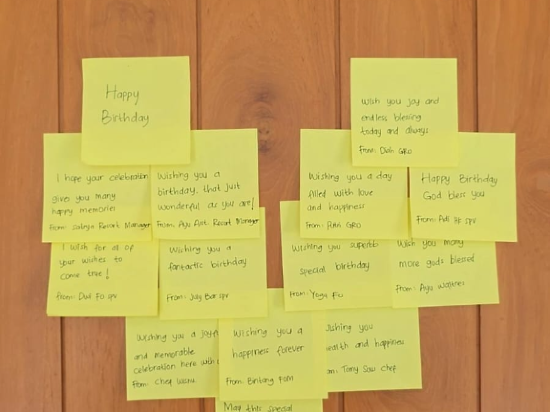 Happy
Birthday
Wish you joy and
endless blessing
today and always
From: Diah GRO
I hope your celebration
gives you many
happy memories
From: Resort Manager
Wishing you a
birthday, that just
wonderful as you are!
From: Ayu Asst. Resort Manager
Wishing you a day
filled with love
and happiness
From: GRO
Happy Birthday
God bless you
From: spv
I wish for all of
your wishes to
come true!
From: Dwi FO spv
Wishing you a
fantastic birthday
From: July Bar spv
Wishing you superb
special birthday
From: Yoga FO
Wish you many
more gods blessed
From: Ayu Waitress
Wishing you a joyful
and memorable
celebration here with
From: Chef
Wishing you a
happiness forever
From: Bintang
ishing you
ealth and happiness
om: Tony Sous chef
May this special